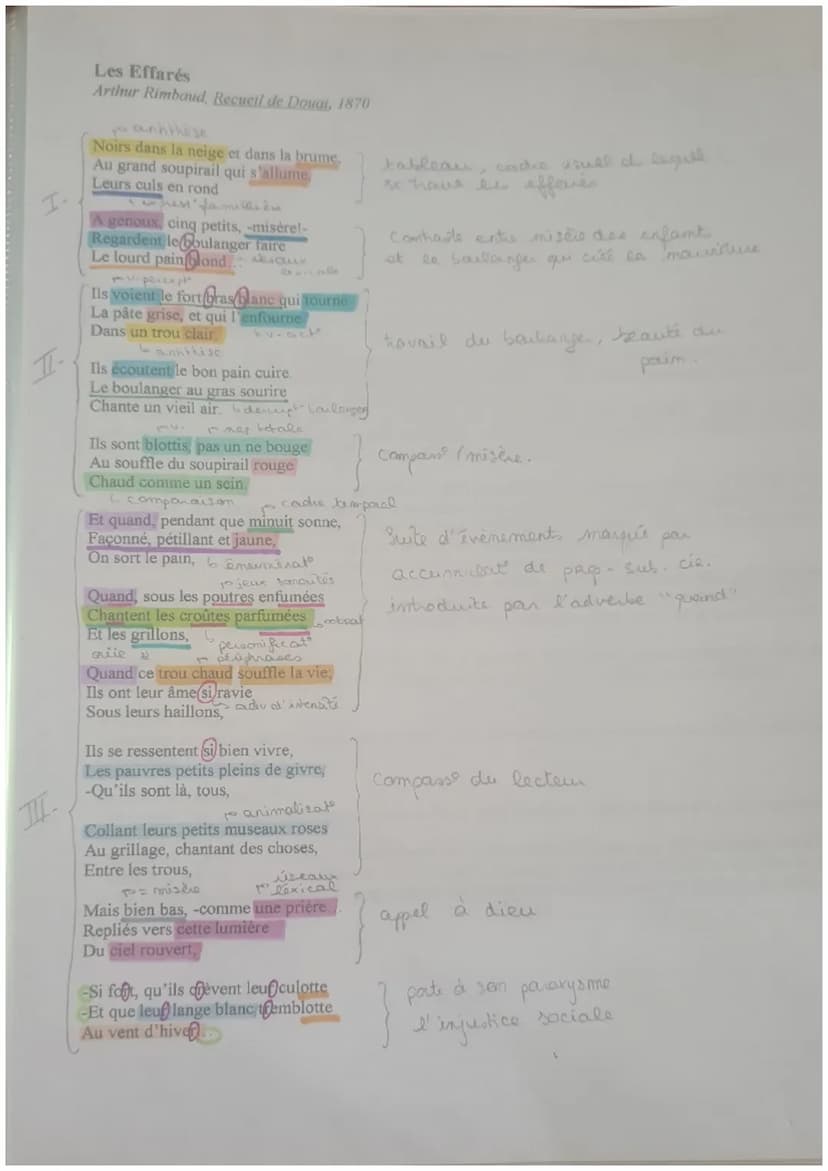 Les Effarés
Arthur Rimbaud, Recueil de Douai, 1870
antithèse
Noirs dans la neige et dans la brume,
Au grand soupirail qui s'allume,
Leurs culs en rond
tableau, cadre visuel ds lequel
se trouve les effarés
I.
A genoux, cinq petits, -misère!-
Regardent le boulanger faire
Le lourd pain blond...
Contraste entre misère des enfants
et le boulanger qui crée la nourriture
Ils voient le fort bras blanc qui tourne
La pâte grise, et qui l'enfourne
Dans un trou clair.
antithèse
travail du boulanger, beauté du
pain.
II.
Ils écoutent le bon pain cuire.
Le boulanger au gras sourire
Chante un vieil air.
descript° boulanger
nég totale
Ils sont blottis, pas un ne bouge
Au souffle du soupirail rouge
Chaud comme un sein.
compass° / misère.
comparaison
cadre temporel
Et quand, pendant que minuit sonne,
Façonné, pétillant et jaune,
On sort le pain,
énumérat°
Suite d'évènements marqué par
accumulat° de prop. sub. cir.
introduite par l'adverbe "quand"
jeux sonorités
Quand, sous les poutres enfumées
Chantent les croûtes parfumées
Et les grillons,
personnificat°
périphrases
Quand ce trou chaud souffle la vie;
Ils ont leur âme si ravie
Sous leurs haillons,
adv d'intensité
Ils se ressentent si bien vivre,
Les pauvres petits pleins de givre,
-Qu'ils sont là, tous,
compass° du lecteur
III.
animalisat°
Collant leurs petits museaux roses
Au grillage, chantant des choses,
Entre les trous,
= misère
réseaux
lexical
Mais bien bas, -comme une prière...
Repliés vers cette lumière
Du ciel rouvert,
appel à dieu
-Si fort, qu'ils crèvent leur culotte
-Et que leur lange blanc tremblotte
Au vent d'hiver...
porte à son paroxysme
l'injustice sociale